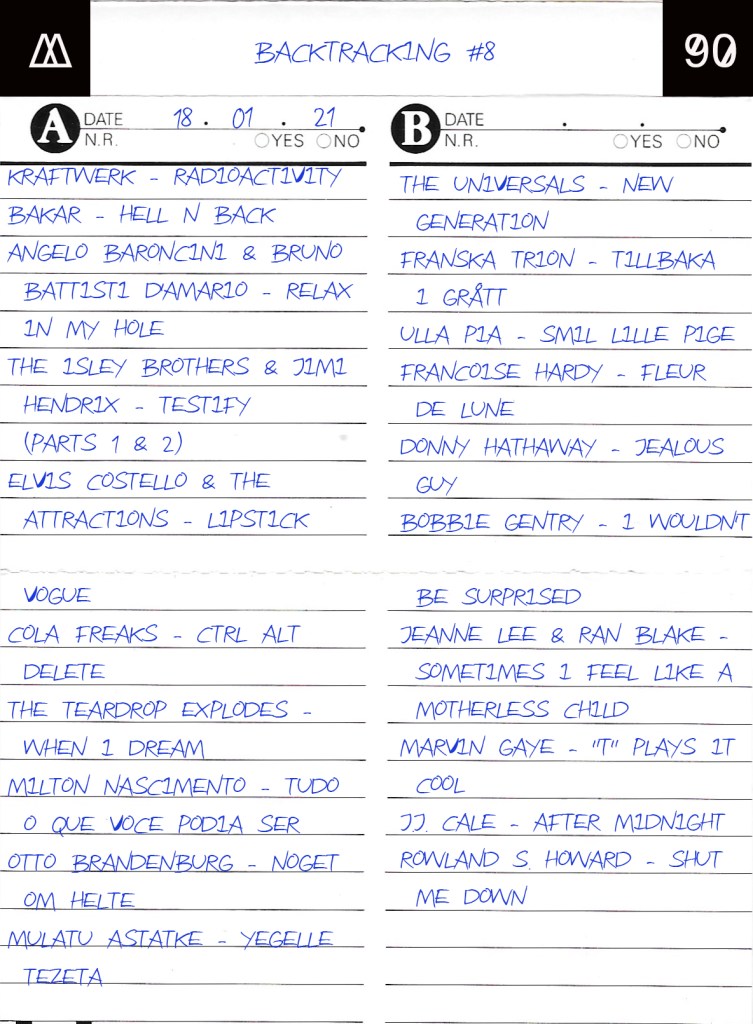 BACKTRACKING #8
90
A DATE 18 . 01 . 21
N.R. YES NO
KRAFTWERK - RADIOACTIVITY
BAKAR - HELL N BACK
ANGELO BARONCINI & BRUNO
BATTISTI D'AMARIO - RELAX
IN MY HOLE
THE ISLEY BROTHERS & JIMI
HENDRIX - TESTIFY
(PARTS 1 & 2)
ELVIS COSTELLO & THE
ATTRACTIONS - LIPSTICK
VOGUE
COLA FREAKS - CTRL ALT
DELETE
THE TEARDROP EXPLODES -
WHEN I DREAM
MILTON NASCIMENTO - TUDO
O QUE VOCE PODIA SER
OTTO BRANDENBURG - NOGET
OM HELTE
MULATU ASTATKE - YEGELLE
TEZETA
B DATE . .
N.R. YES NO
THE UNIVERSALS - NEW
GENERATION
FRANSKA TRION - TILLBAKA
I GRÅTT
ULLA PIA - SMIL LILLE PIGE
FRANCOISE HARDY - FLEUR
DE LUNE
DONNY HATHAWAY - JEALOUS
GUY
BOBBIE GENTRY - I WOULDN'T
BE SURPRISED
JEANNE LEE & RAN BLAKE -
SOMETIMES I FEEL LIKE A
MOTHERLESS CHILD
MARVIN GAYE - "T" PLAYS IT
COOL
J.J. CALE - AFTER MIDNIGHT
ROWLAND S. HOWARD - SHUT
ME DOWN